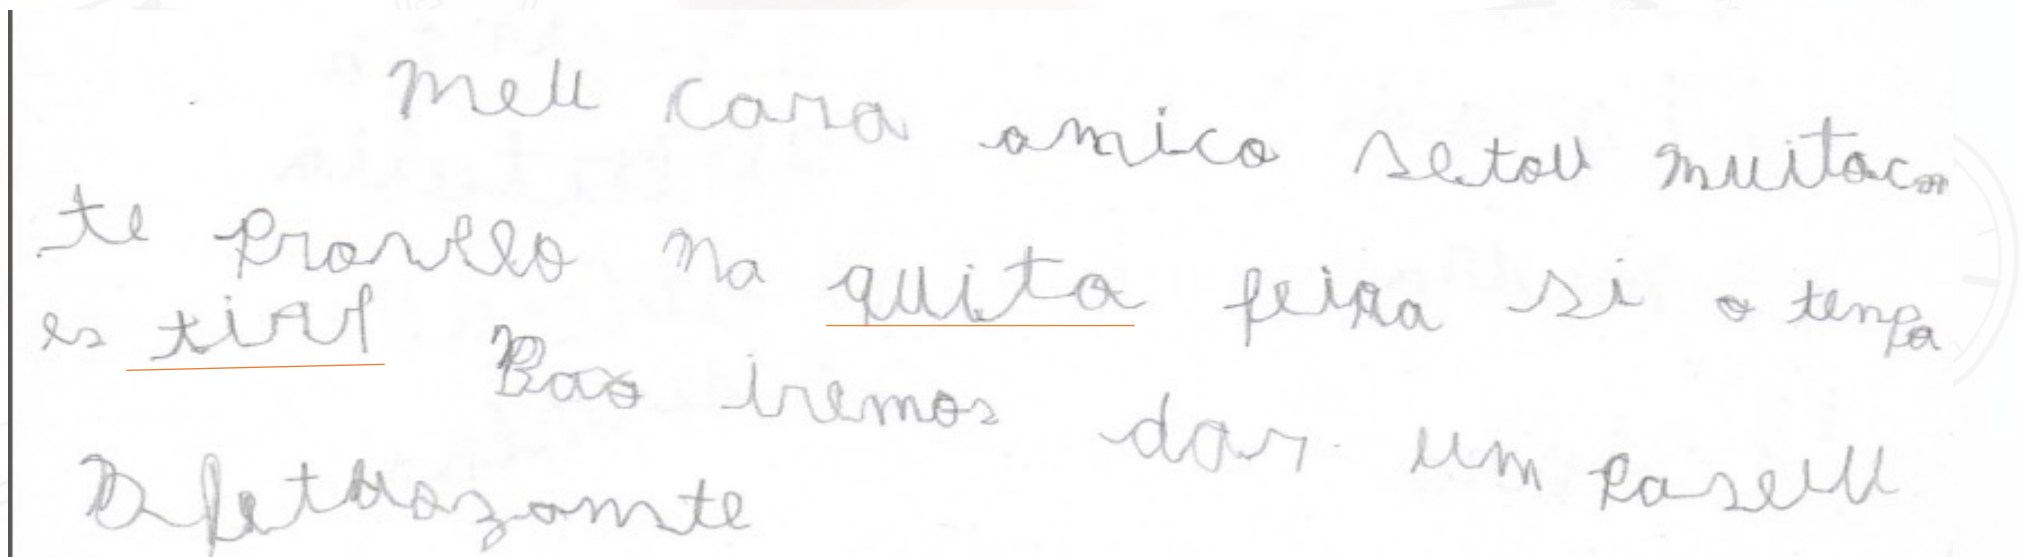 Meu cara amico setou muitocon
te pronello na quita feira si o tenpa
es tivf Bao iremos dar um paseiu
Afetuozamste